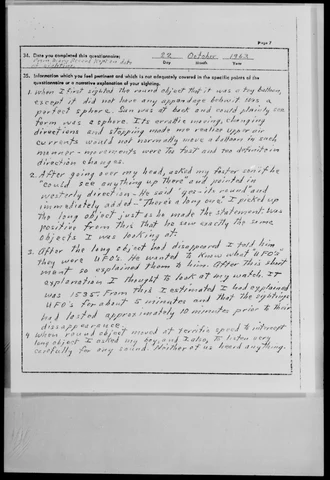 Page 7
34. Date you completed this questionnaire: 22 October 1963
Day Month Year
from diary record kept on date
of sighting.
35. Information which you feel pertinent and which is not adequately covered in the specific points of the
questionnaire or a narrative explanation of your sighting.
1. When I first sighted the round object that it was a toy balloon,
except it did not have any appendage behind. Was a
perfect sphere. Sun was at back and could plainly see
form was a sphere. Its erratic moving, changing
directions and stopping made me realize upper air
currents would not normally move a balloon in such
manner - movements were too fast and too definite in
direction changes.
2. After going over my head, asked my foster son if he
"could see anything up there" and pointed in
westerly direction - He said "yes - its round" and
immediately added - "There's a long one". I picked up
the long object just as he made the statement. Was
positive from this that he saw exactly the same
objects I was looking at.
3. After the long object had disappeared I told him
they were UFO's. He wanted to know what "UFO's"
meant so explained them to him. After this short
explanation I thought to look at my watch. It
was 1535. From this I estimated I had explained
UFO's for about 5 minutes and that the sightings
had lasted approximately 10 minutes prior to their
dissappearance.
4. When round object moved at terrific speed to intercept
long object I asked my boy, and I also, to listen very
carefully for any sound. Neither of us heard anything.